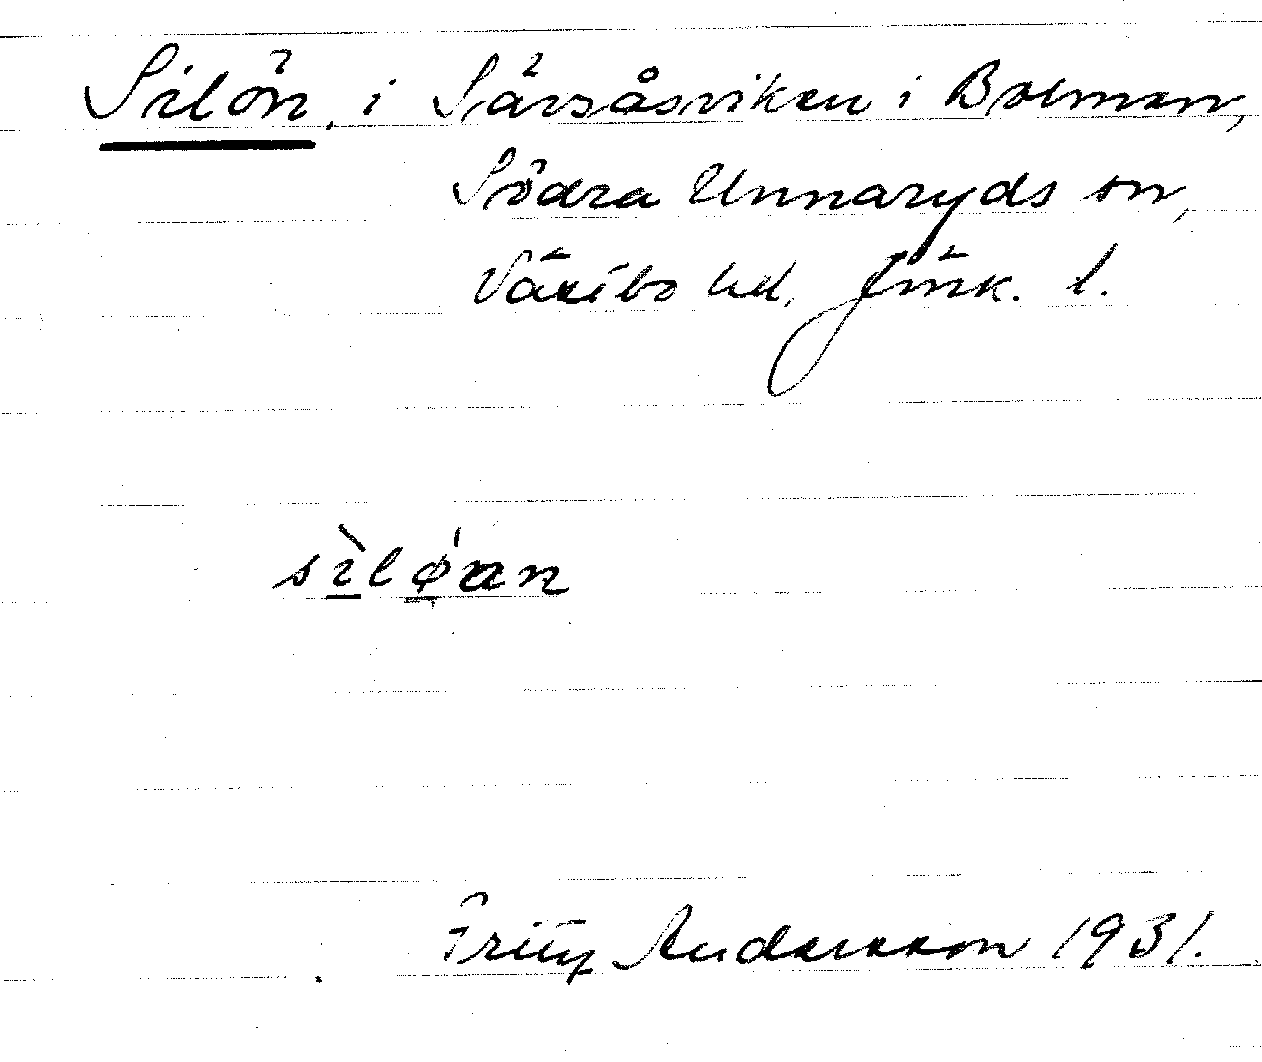 Silön, i Sårsåsviken i Bolmen,
Södra Unnaryds sn,
Västbo hd, Jönk. l.
sìløan
Fritz Andersson 1931.